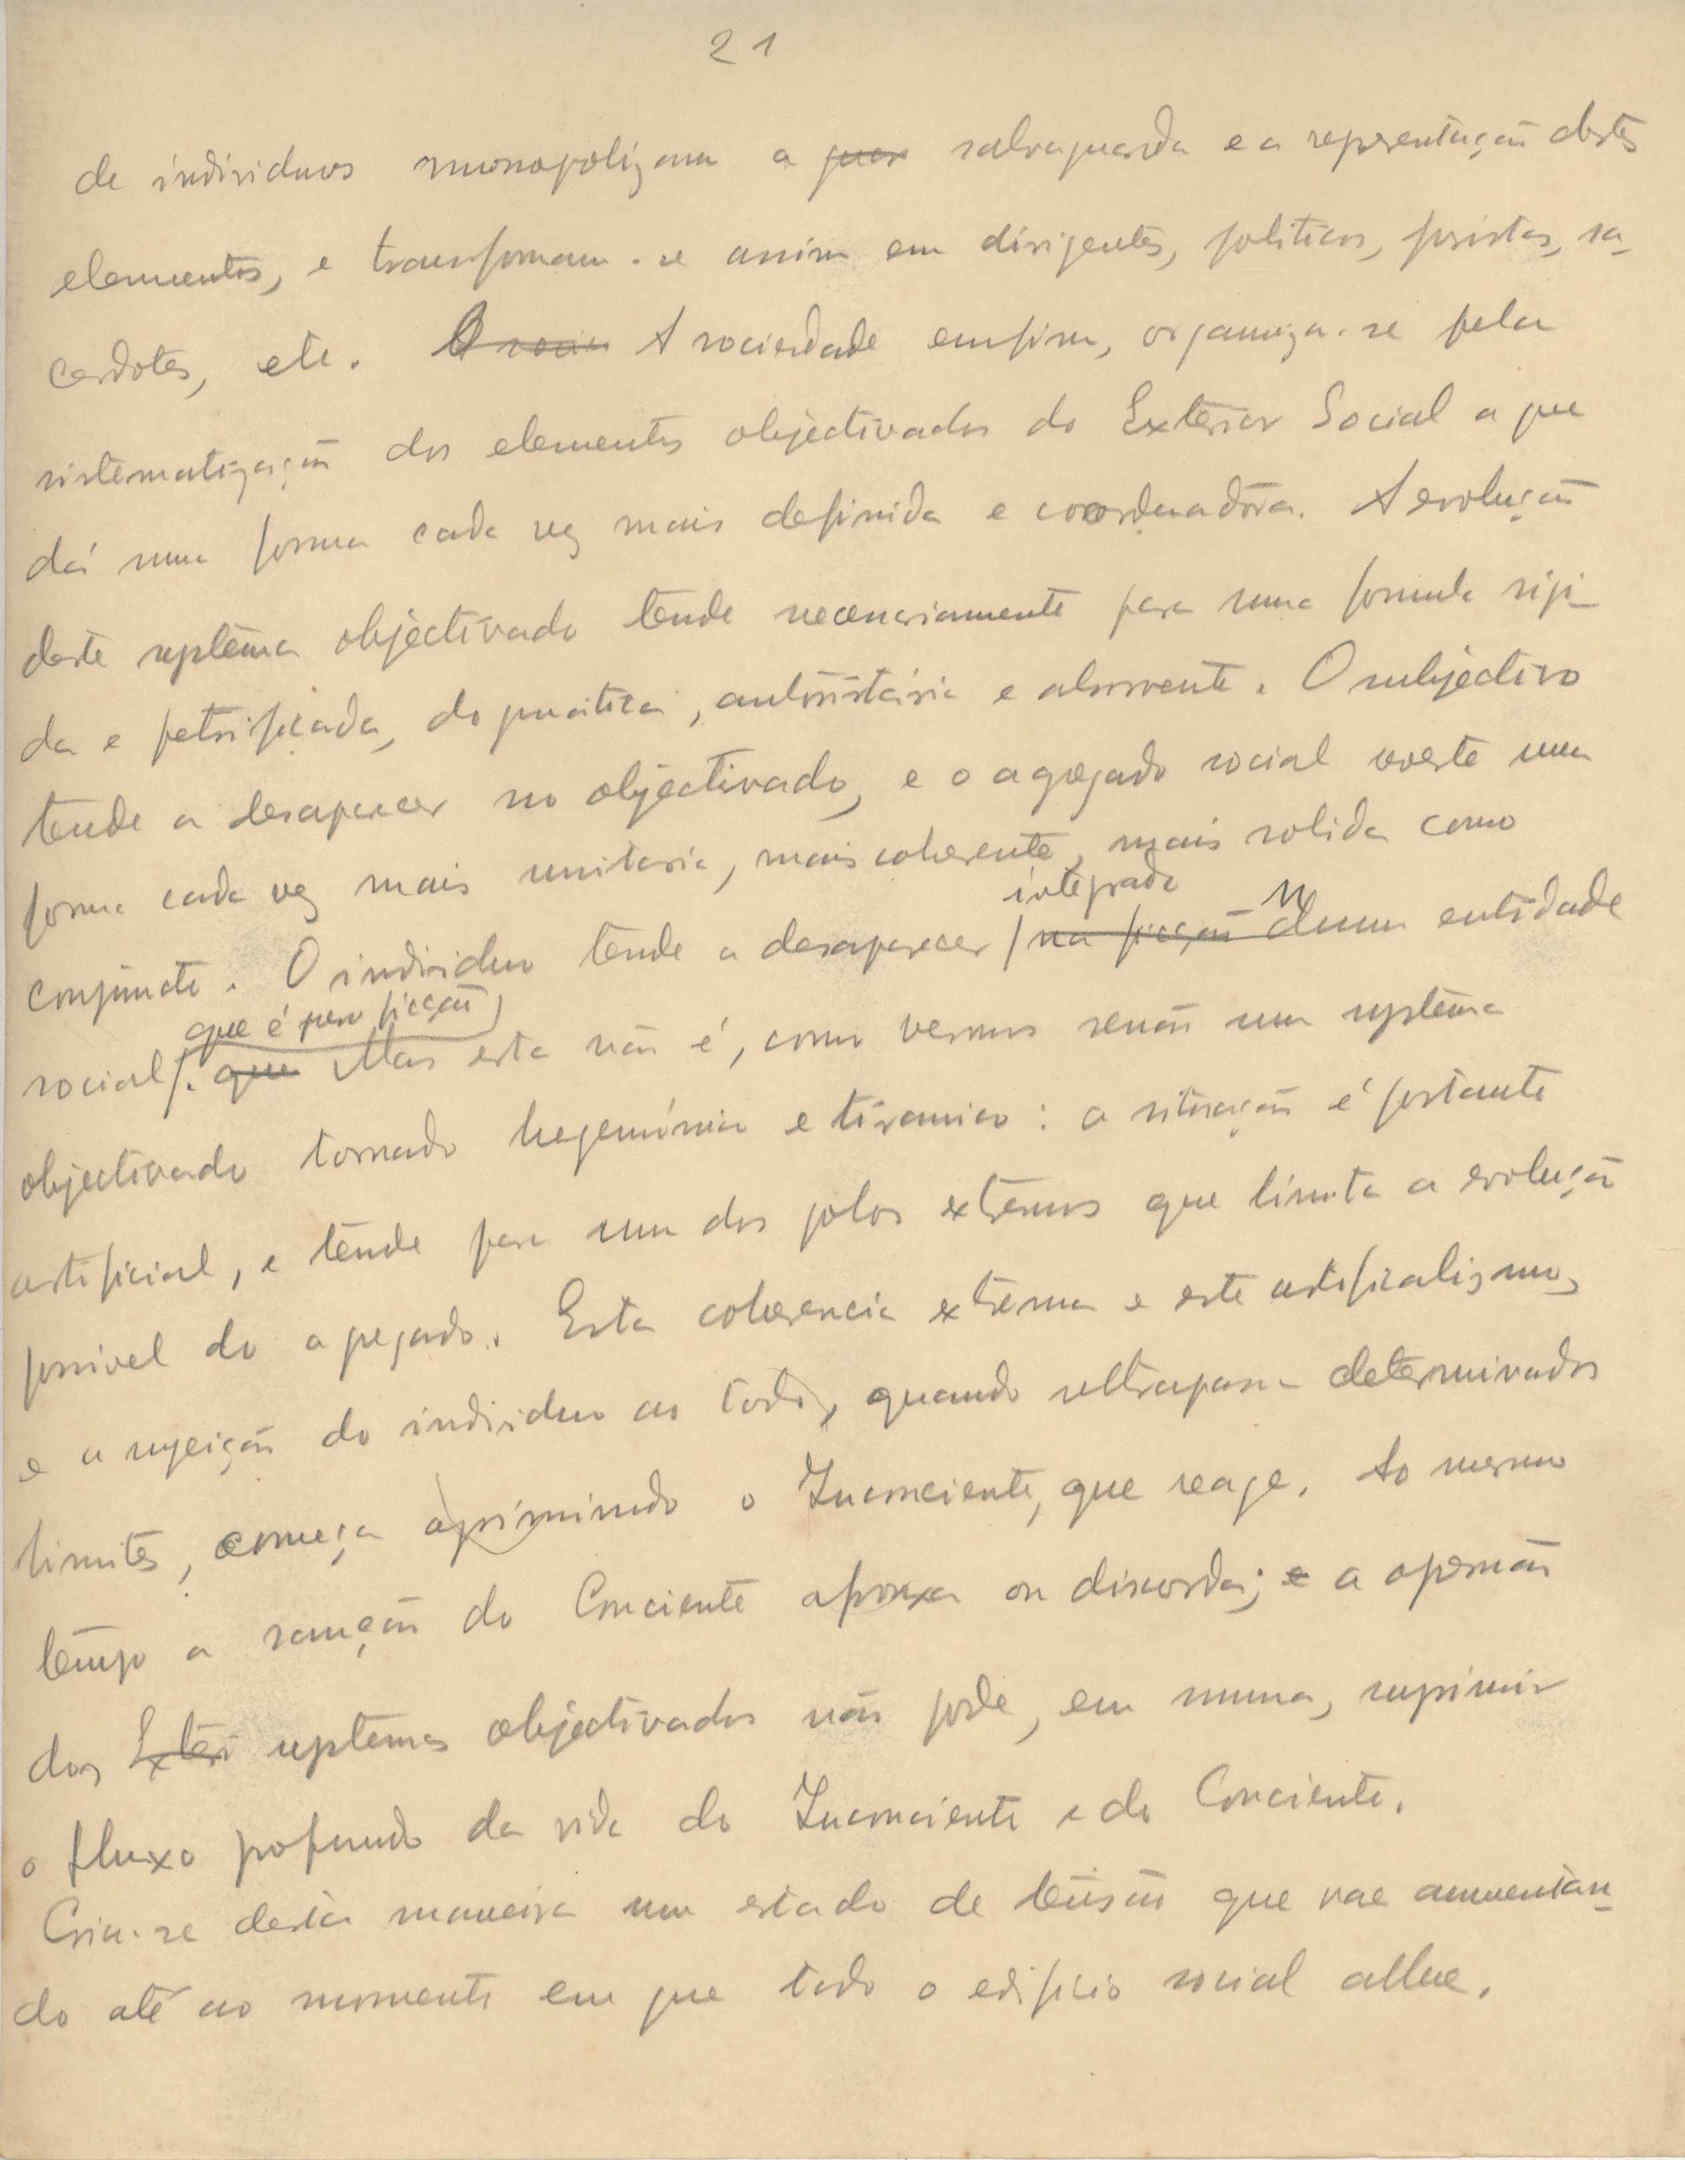 21
de individuos monopolizam a guar salvaguarda e a representação destes
elementos, e transformam-se assim em dirigentes, politicos, juristas, sa-
cerdotes, etc. A socie A sociedade emfim, organiza-se pela
sistematização dos elementos objectivados do Exterior Social a que
dá uma forma cada vez mais definida e coordenadora. A evolução
deste systema objectivado tende necessariamente para uma formula rigi-
da e petrificada, dogmatica, autoritária e absorvente. O subjectivo
tende a desaparecer no objectivado, e o agregado social reveste uma
forma cada vez mais unitaria, mais coherente, mais solida como
integrado
conjuncto. O individuo tende a desaparecer na ficção numa entidade
que é pura ficção
social. que Mas esta não é, como vemos senão um systema
objectivado tornado hegemónico e tiranico: a situação é portanto
artificial, e tende para um dos polos extremos que limita a evolução
possivel do agregado. Esta coherencia extrema e este artificialismo,
e a sujeição do individuo ao todo, quando ultrapassa determinados
limites, começa oprimindo o Inconciente, que reage. Ao mesmo
tempo a sanção do Conciente afrouxa ou discorda; e a opressão
dos Exteri systemas objectivados não pode, em summa, suprimir
o fluxo profundo da vida do Inconciente e do Conciente.
Cria-se desta maneira um estado de tensão que vae aumentan-
do até ao momento em que todo o edificio social allue.